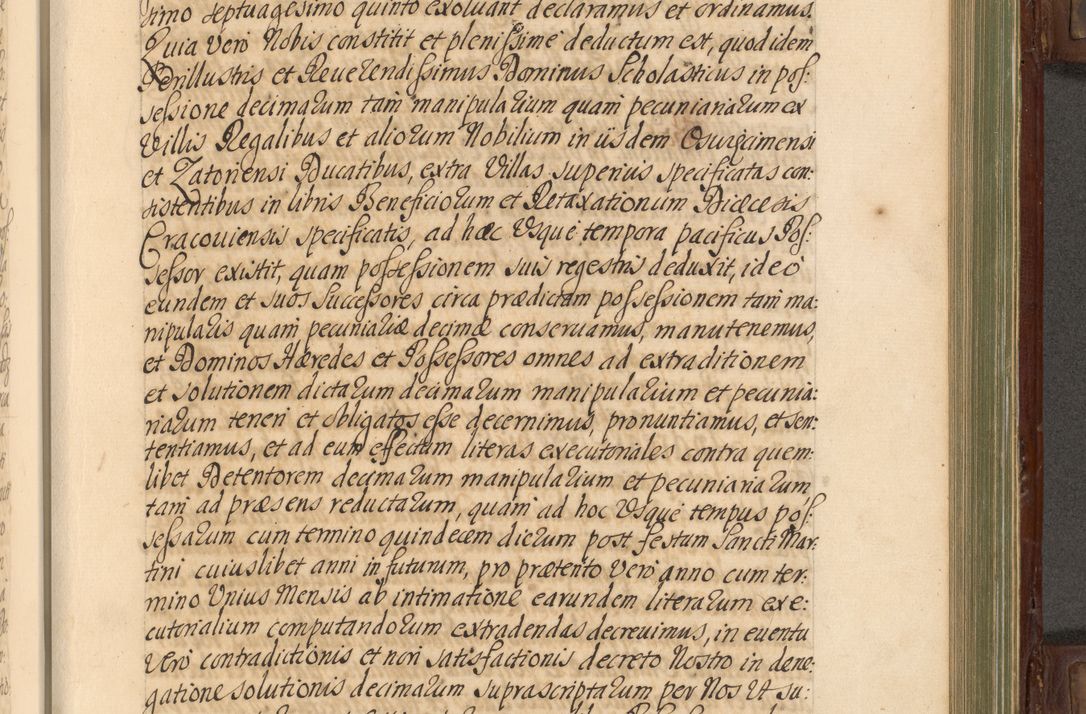 simo septuagesimo quinto exoluant declaramus et ordinamus.
Quia Vero Nobis constitit et plenissime deductum est, quod idem
Perillustris et Reuerendissimus Dominus Scholasticus in pos-
sessione decimarum tam manipularium quam pecuniariarum ex
Villis Regalibus et aliorum Nobilium in iisdem Osuiecimensi
et Zatoriensi Ducatibus, extra Villas superius specificatas con-
sistentibus in libris Beneficiorum et Retaxationum Diæcesis
Cracouiensis specificatis, ad hæc Vsque tempora pacificus Pos-
sessor existit, quam possessionem suis regestris deduxit, ideo
eundem et suos Successores circa prædictam possessionem tam ma-
nipularis quam pecuniariæ decimæ conseruamus, manutenemus,
et Dominos Hæredes et Possessores omnes ad extraditionem
et solutionem dictarum decimarum manipularium et pecunia-
riarum teneri et obligatos esse decernimus, pronuntiamus, et sen-
tentiamus, et ad eum effectum literas executoriales contra quem-
libet Detentorem decimarum manipularium et pecuniariarum
tam ad præsens reductarum, quam ad hoc Vsque tempus pos-
sessarum cum termino quindecem dierum post festum Sancti Mar-
tini cuiuslibet anni in futurum, pro prætento Vero anno cum ter-
mino Vnius Mensis ab intimatione earundem literarum exe-
cutorialium computandorum extradendas decreuimus, in euentu
Vero contradictionis et non satisfactionis decreto Nostro in dene-
gatione solutionis decimarum suprascriptarum per Nos Vt su-